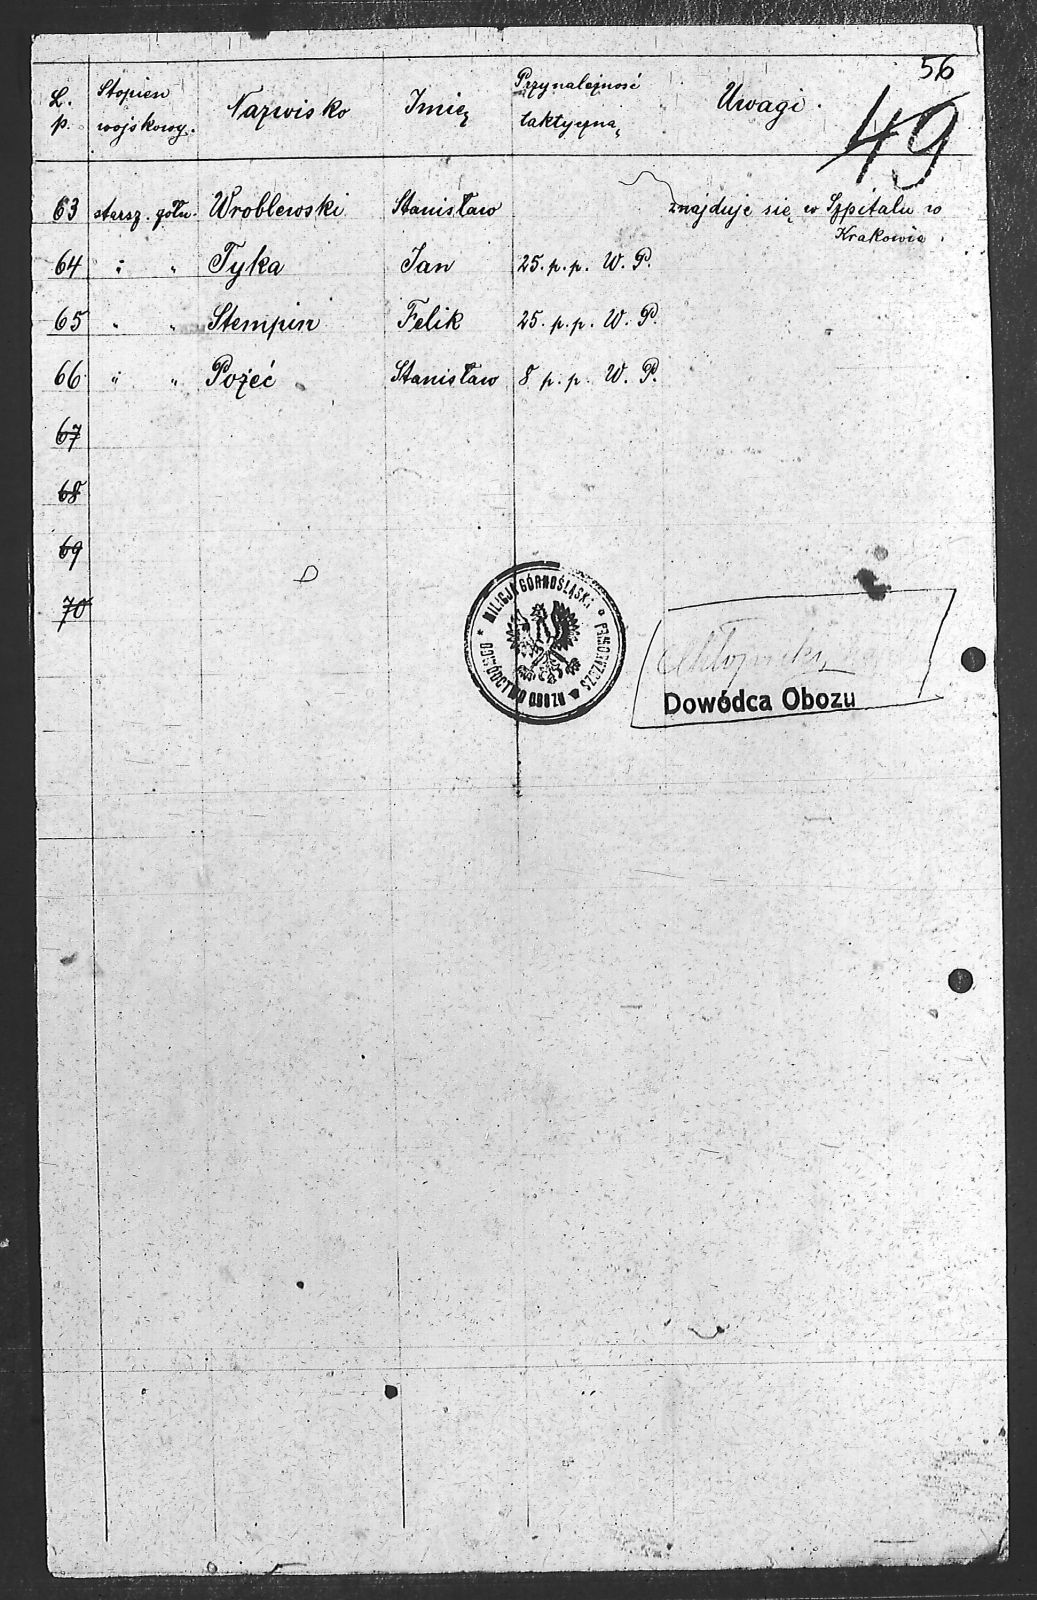 56
49
L. p. Stopień wojskowy. Nazwisko Imię Przynależność taktyczna, Uwagi.
63 starsz. żołn. Wroblewski Stanisław znajduje się w Szpitalu w
Krakowie.
64 " " Tyka Jan 25. p. p. W. P.
65 " " Stempin Felik 25. p. p. W. P.
66 " " Pożeć Stanisław 8 p. p. W. P.
67
68
69
70
MILICJA GÓRNOŚLĄSKA * * DOWÓDCTWO OBOZU
Dowódca Obozu